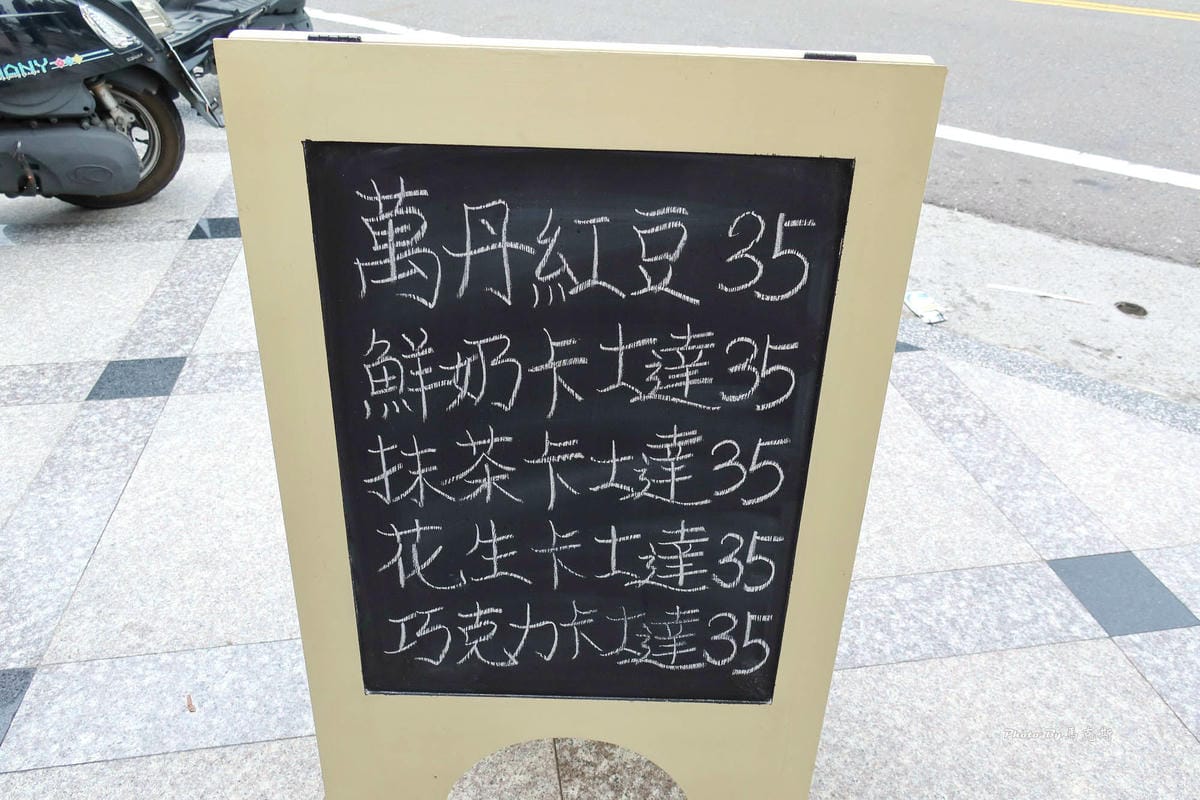 萬丹紅豆 35
鮮奶卡士達 35
抹茶卡士達 35
花生卡士達 35
巧克力卡士達 35
Photo By 馬克斯